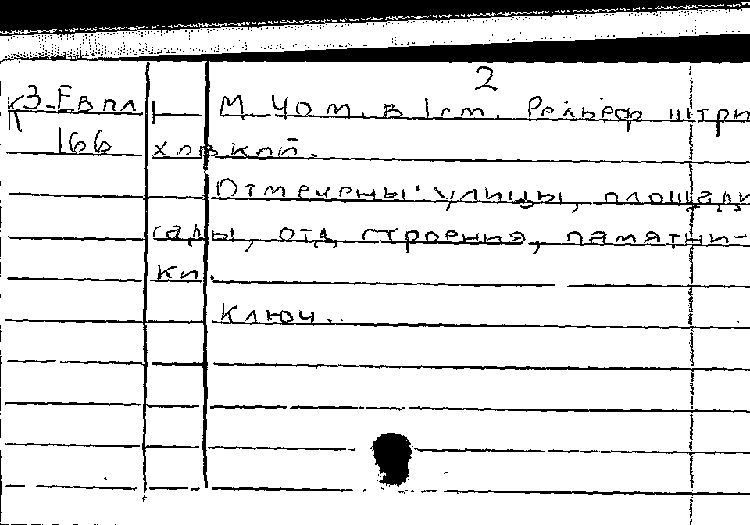 2
К3-Евпл М 40 м. в 1 см. Рельеф штри
166 ховкой.
Отмечены: улицы, площади
сады, отд. строения, памятни-
ки.
Ключ.